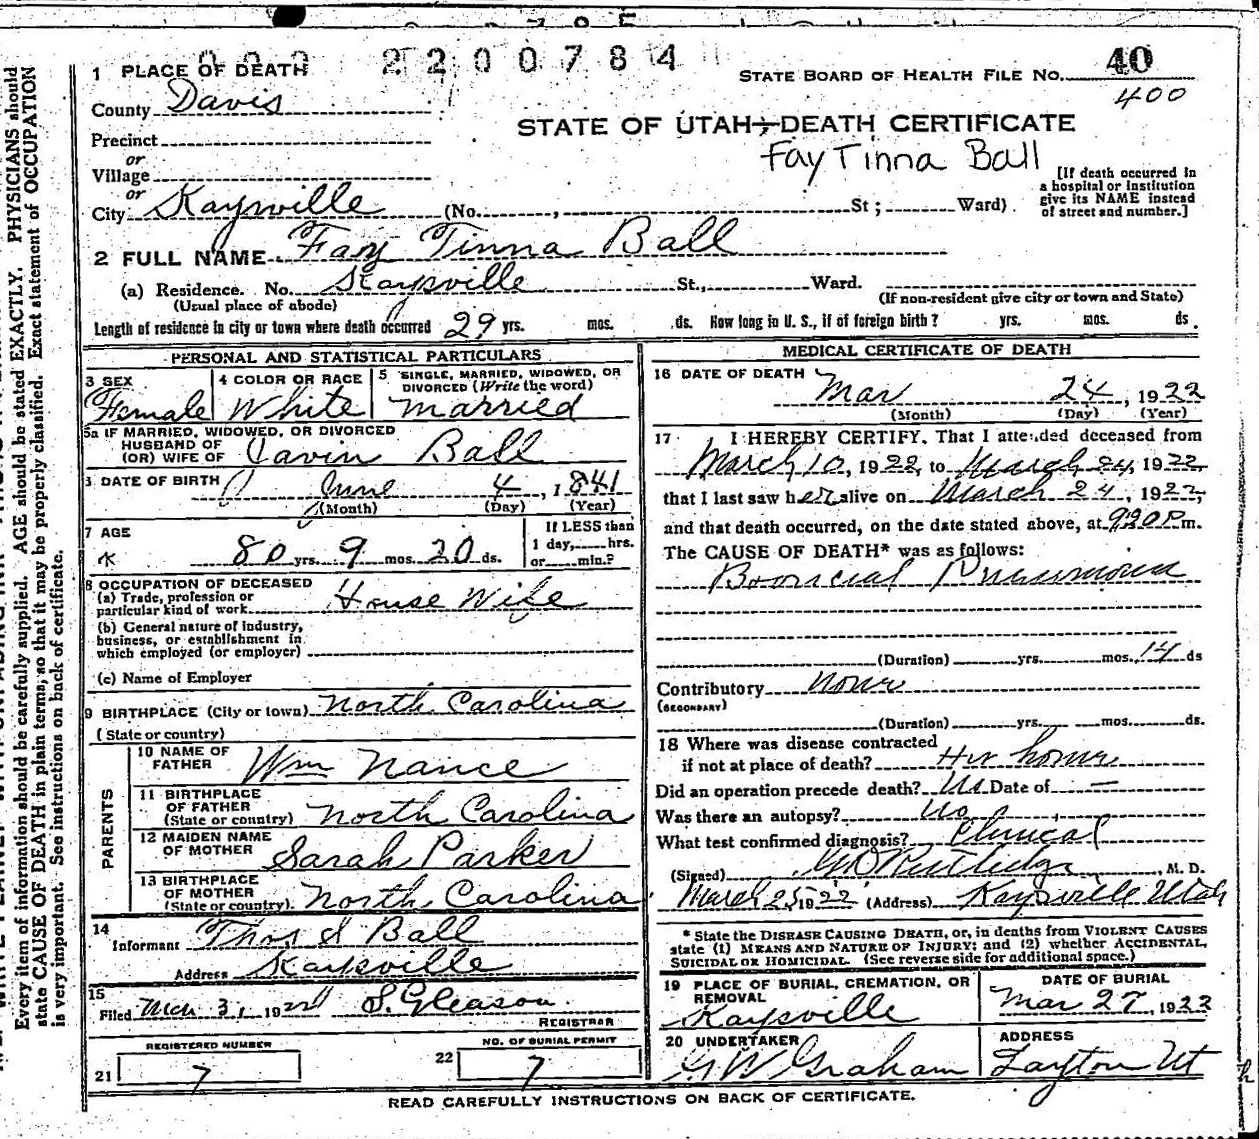 2200784
1 PLACE OF DEATH
STATE BOARD OF HEALTH FILE NO. 40
400
County Davis
STATE OF UTAH—DEATH CERTIFICATE
Fay Tinna Ball
Precinct
or
Village
or
City Kaysville (No. , St; Ward)
[If death occurred in
a hospital or institution
give its NAME instead
of street and number.]
2 FULL NAME Fay Tinna Ball
(a) Residence. No. Kaysville St., Ward.
(Usual place of abode)
(If non-resident give city or town and State)
Length of residence in city or town where death occurred 29 yrs. mos. ds. How long in U. S., if of foreign birth? yrs. mos. ds.
PERSONAL AND STATISTICAL PARTICULARS
3 SEX
Female
4 COLOR OR RACE
White
5 SINGLE, MARRIED, WIDOWED, OR
DIVORCED (Write the word)
Married
5a IF MARRIED, WIDOWED, OR DIVORCED
HUSBAND OF
(OR) WIFE OF Ball
DATE OF BIRTH June 4, 1841
(Month) (Day) (Year)
7 AGE
80 yrs. 9 mos. 20 ds.
If LESS than
1 day, hrs.
or min.?
8 OCCUPATION OF DECEASED
(a) Trade, profession or
particular kind of work House Wife
(b) General nature of Industry,
business, or establishment in
which employed (or employer)
(c) Name of Employer
9 BIRTHPLACE (City or town) North Carolina
(State or country)
PARENTS
10 NAME OF
FATHER Wm Nance
11 BIRTHPLACE
OF FATHER
(State or country) North Carolina
12 MAIDEN NAME
OF MOTHER Sarah Parker
13 BIRTHPLACE
OF MOTHER
(State or country) North Carolina
14
Informant Thos S Ball
Address Kaysville
15
Filed Mar 31, 1922 S. Gleason
REGISTRAR
REGISTERED NUMBER
21 7
NO. OF BURIAL PERMIT
22 7
MEDICAL CERTIFICATE OF DEATH
16 DATE OF DEATH
Mar 24, 1922
(Month) (Day) (Year)
17 I HEREBY CERTIFY, That I attended deceased from
March 10, 1922, to March 24, 1922
that I last saw her alive on March 24, 1922,
and that death occurred, on the date stated above, at 920 P m.
The CAUSE OF DEATH* was as follows:
Broncial Pneumonia
(Duration) yrs. mos. 14 ds
Contributory None
(SECONDARY)
(Duration) yrs. mos. ds.
18 Where was disease contracted
if not at place of death? Her home
Did an operation precede death? No Date of —
Was there an autopsy? No
What test confirmed diagnosis? Clinical
(Signed) G D Rutledge, M. D.
March 25, 1922 (Address) Kaysville Utah
* State the DISEASE CAUSING DEATH, or, in deaths from VIOLENT CAUSES
state (1) MEANS AND NATURE OF INJURY; and (2) whether ACCIDENTAL,
SUICIDAL OR HOMICIDAL. (See reverse side for additional space.)
19 PLACE OF BURIAL, CREMATION, OR
REMOVAL
Kaysville
DATE OF BURIAL
Mar 27, 1922
20 UNDERTAKER
G W Graham
ADDRESS
Layton Ut
READ CAREFULLY INSTRUCTIONS ON BACK OF CERTIFICATE.
Every item of information should be carefully supplied. AGE should be stated EXACTLY. PHYSICIANS should
state CAUSE OF DEATH in plain terms, so that it may be properly classified. Exact statement of OCCUPATION
is very important. See instructions on back of certificate.